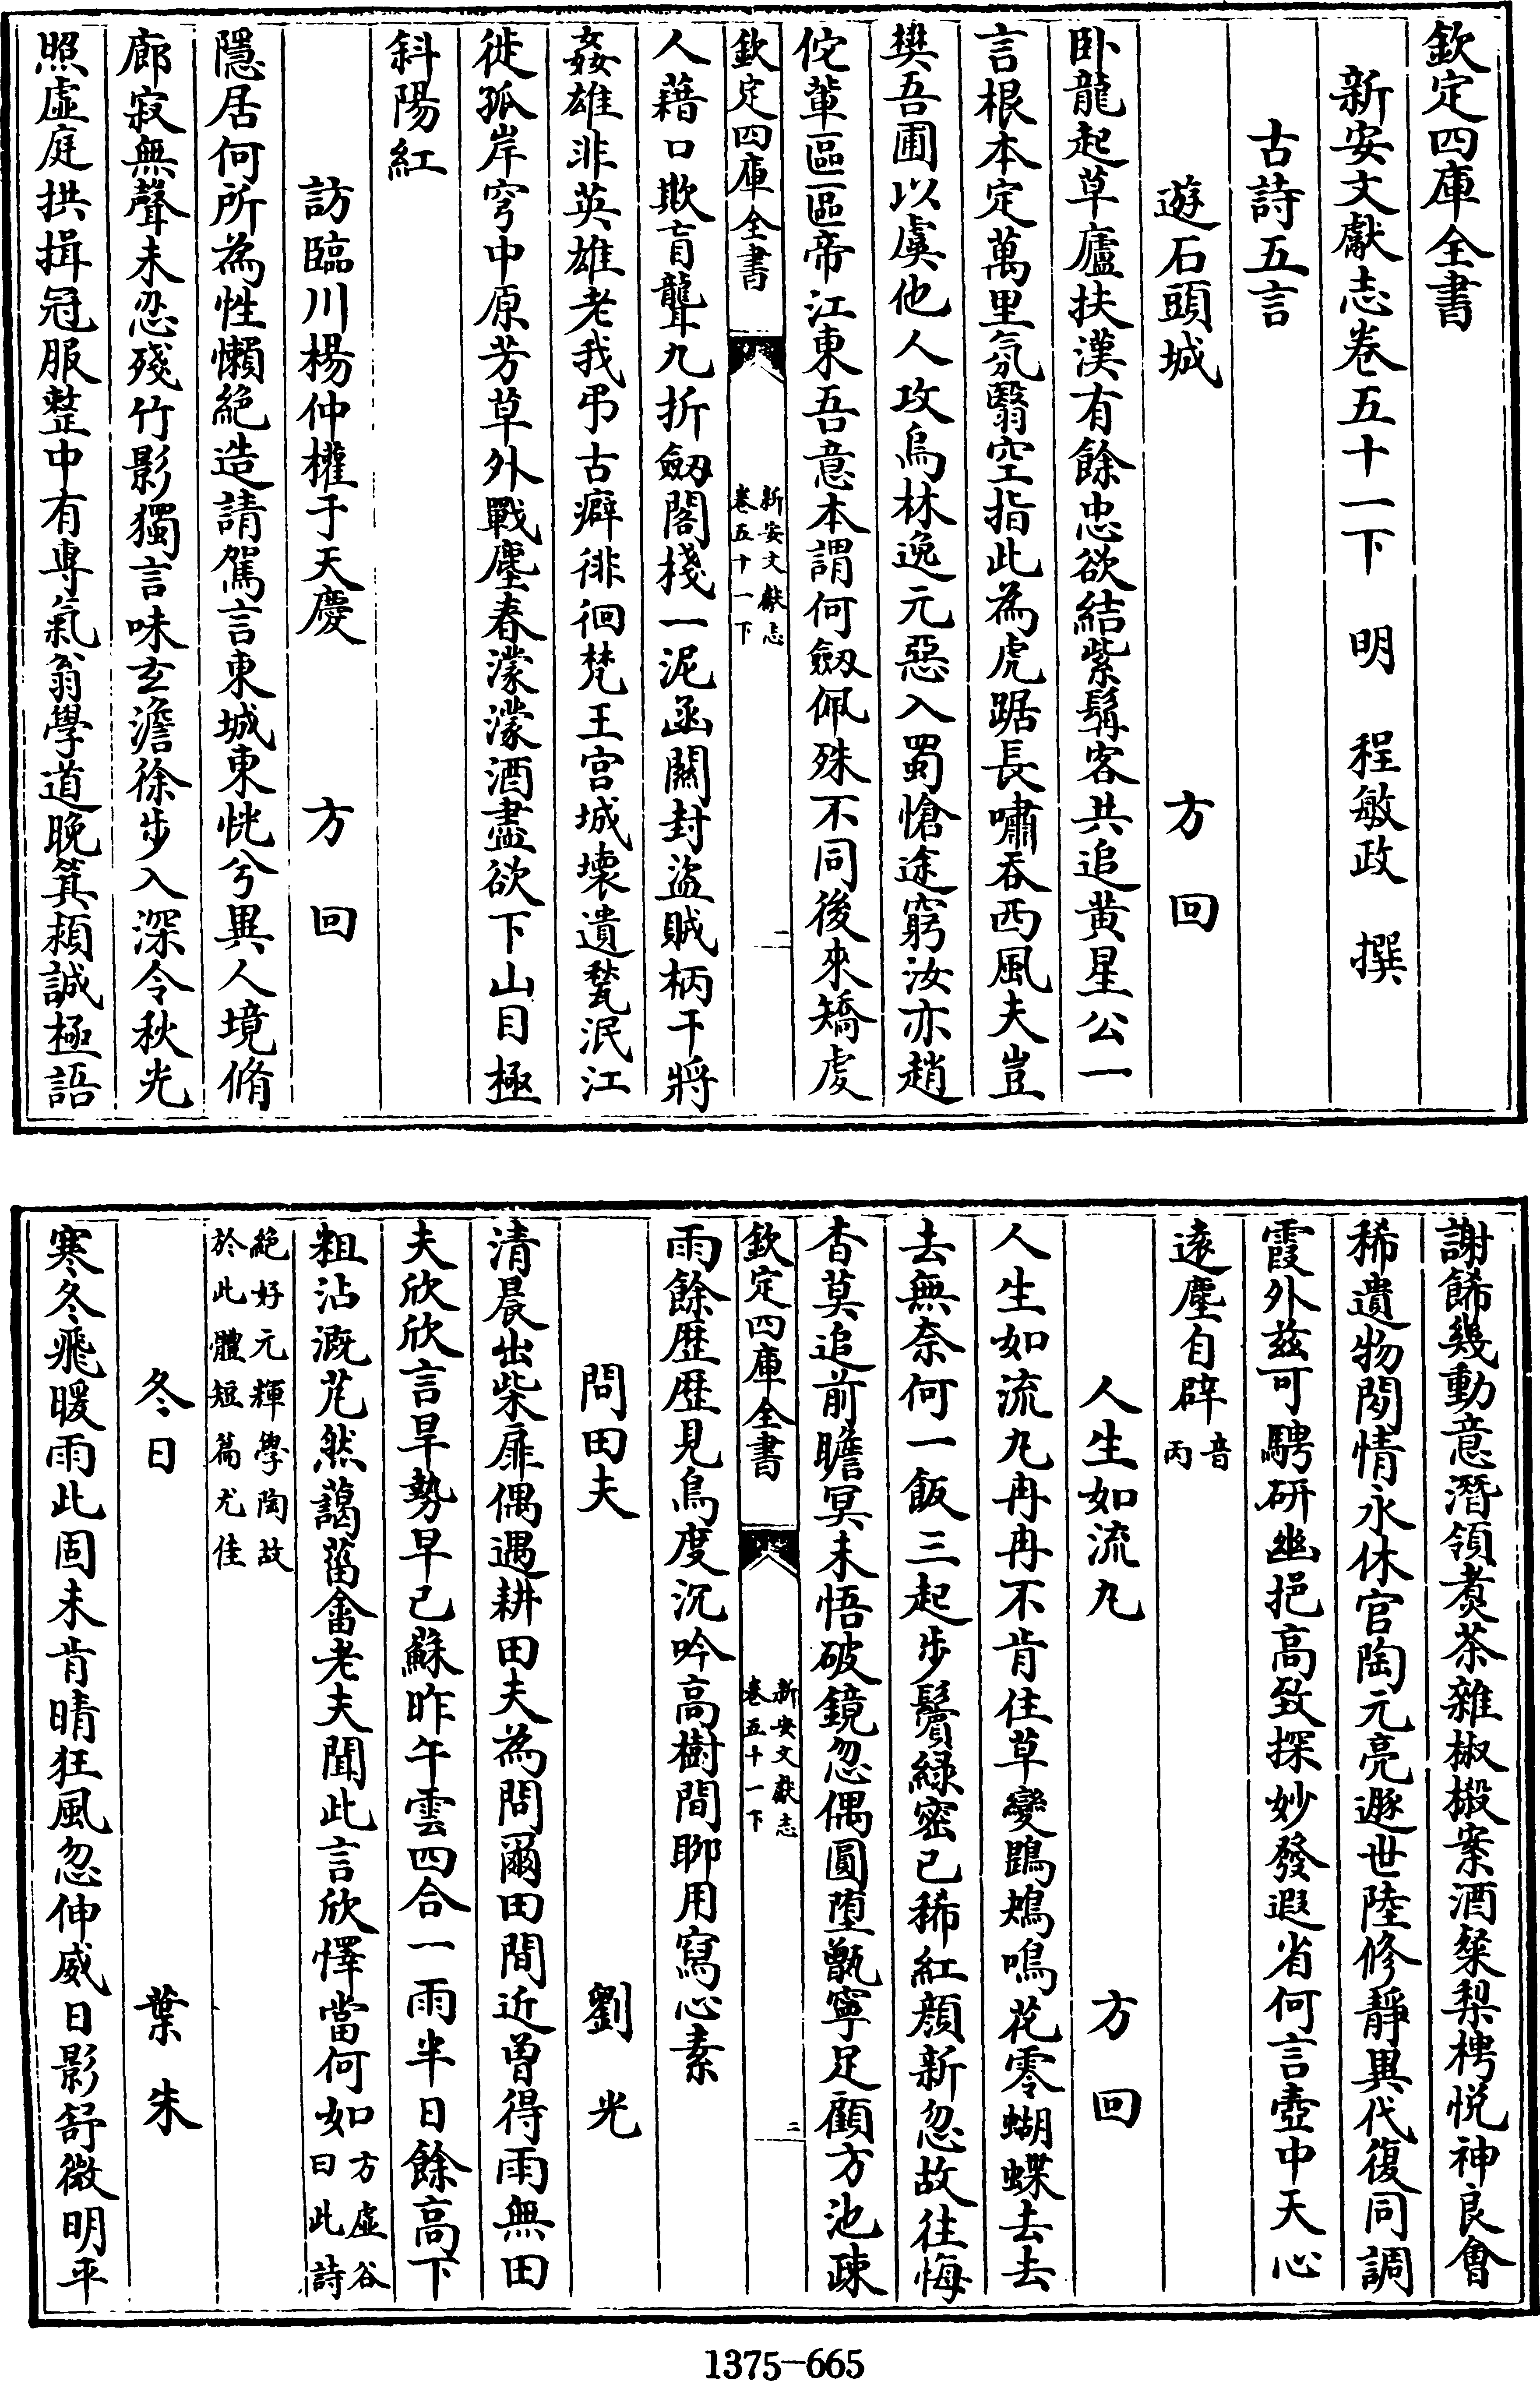 欽定四庫全書
新安文獻志卷五十一下　明　程敏政　撰
古詩五言
遊石頭城　方　回
卧龍起草廬扶漢有餘忠欲結紫髯客共追黄星公一
言根本定萬里氛翳空指此為虎踞長嘯吞西風夫豈
樊吾圃以虞他人攻烏林逸元惡入蜀愴途窮汝亦趙
佗輩區區帝江東吾意本謂何劔佩殊不同後來矯虔
欽定四庫全書
新安文獻志
卷五十一下
一
人藉口欺盲聾九折劔閣棧一泥函關封盜賊柄干將
姦雄非英雄老我弔古癖徘徊梵王宫城壊遺甃泯江
徙孤岸穹中原芳草外戰塵春濛濛酒盡欲下山目極
斜陽紅
訪臨川楊仲權于天慶　方　回
隱居何所為性懶絶造請駕言東城東恍兮異人境脩
廊寂無聲未忍殘竹影獨言味玄澹徐步入深令秋光
照虚庭拱揖冠服整中有専氣翁學道晚箕潁誠極語
謝餙幾動意潛領煑茶雜椒椴案酒粲梨梬悦神良會
稀遺物閱情永休官陶元亮遯世陸修靜異代復同調
霞外兹可騁研幽挹高致探妙發遐省何言壺中天心
遠塵自辟音丙
人生如流丸　方　回
人生如流丸冉冉不肯住草變鵾鴂鳴花零蝴蝶去去
去無奈何一飯三起步鬢緑密已稀紅顔新忽故往悔
杳莫追前瞻冥未悟破鏡忽偶圓堕甑寧足顧方池疎
欽定四庫全書
新安文獻志
卷五十一下
二
雨餘歴歴見鳥度沉吟高樹間聊用寫心素
問田夫　劉　光
清晨出柴扉偶遇耕田夫為問爾田間近曽得雨無田
夫欣欣言旱勢早已蘇昨午雲四合一雨半日餘高下
粗沾溉芃然藹菑畬老夫聞此言欣懌當何如方虚谷曰此詩
絶好元輝學陶故於此體短篇尤佳
冬日　葉　朱
寒冬飛暖雨此固未肯晴狂風忽伸威日影舒微明平
1375-665